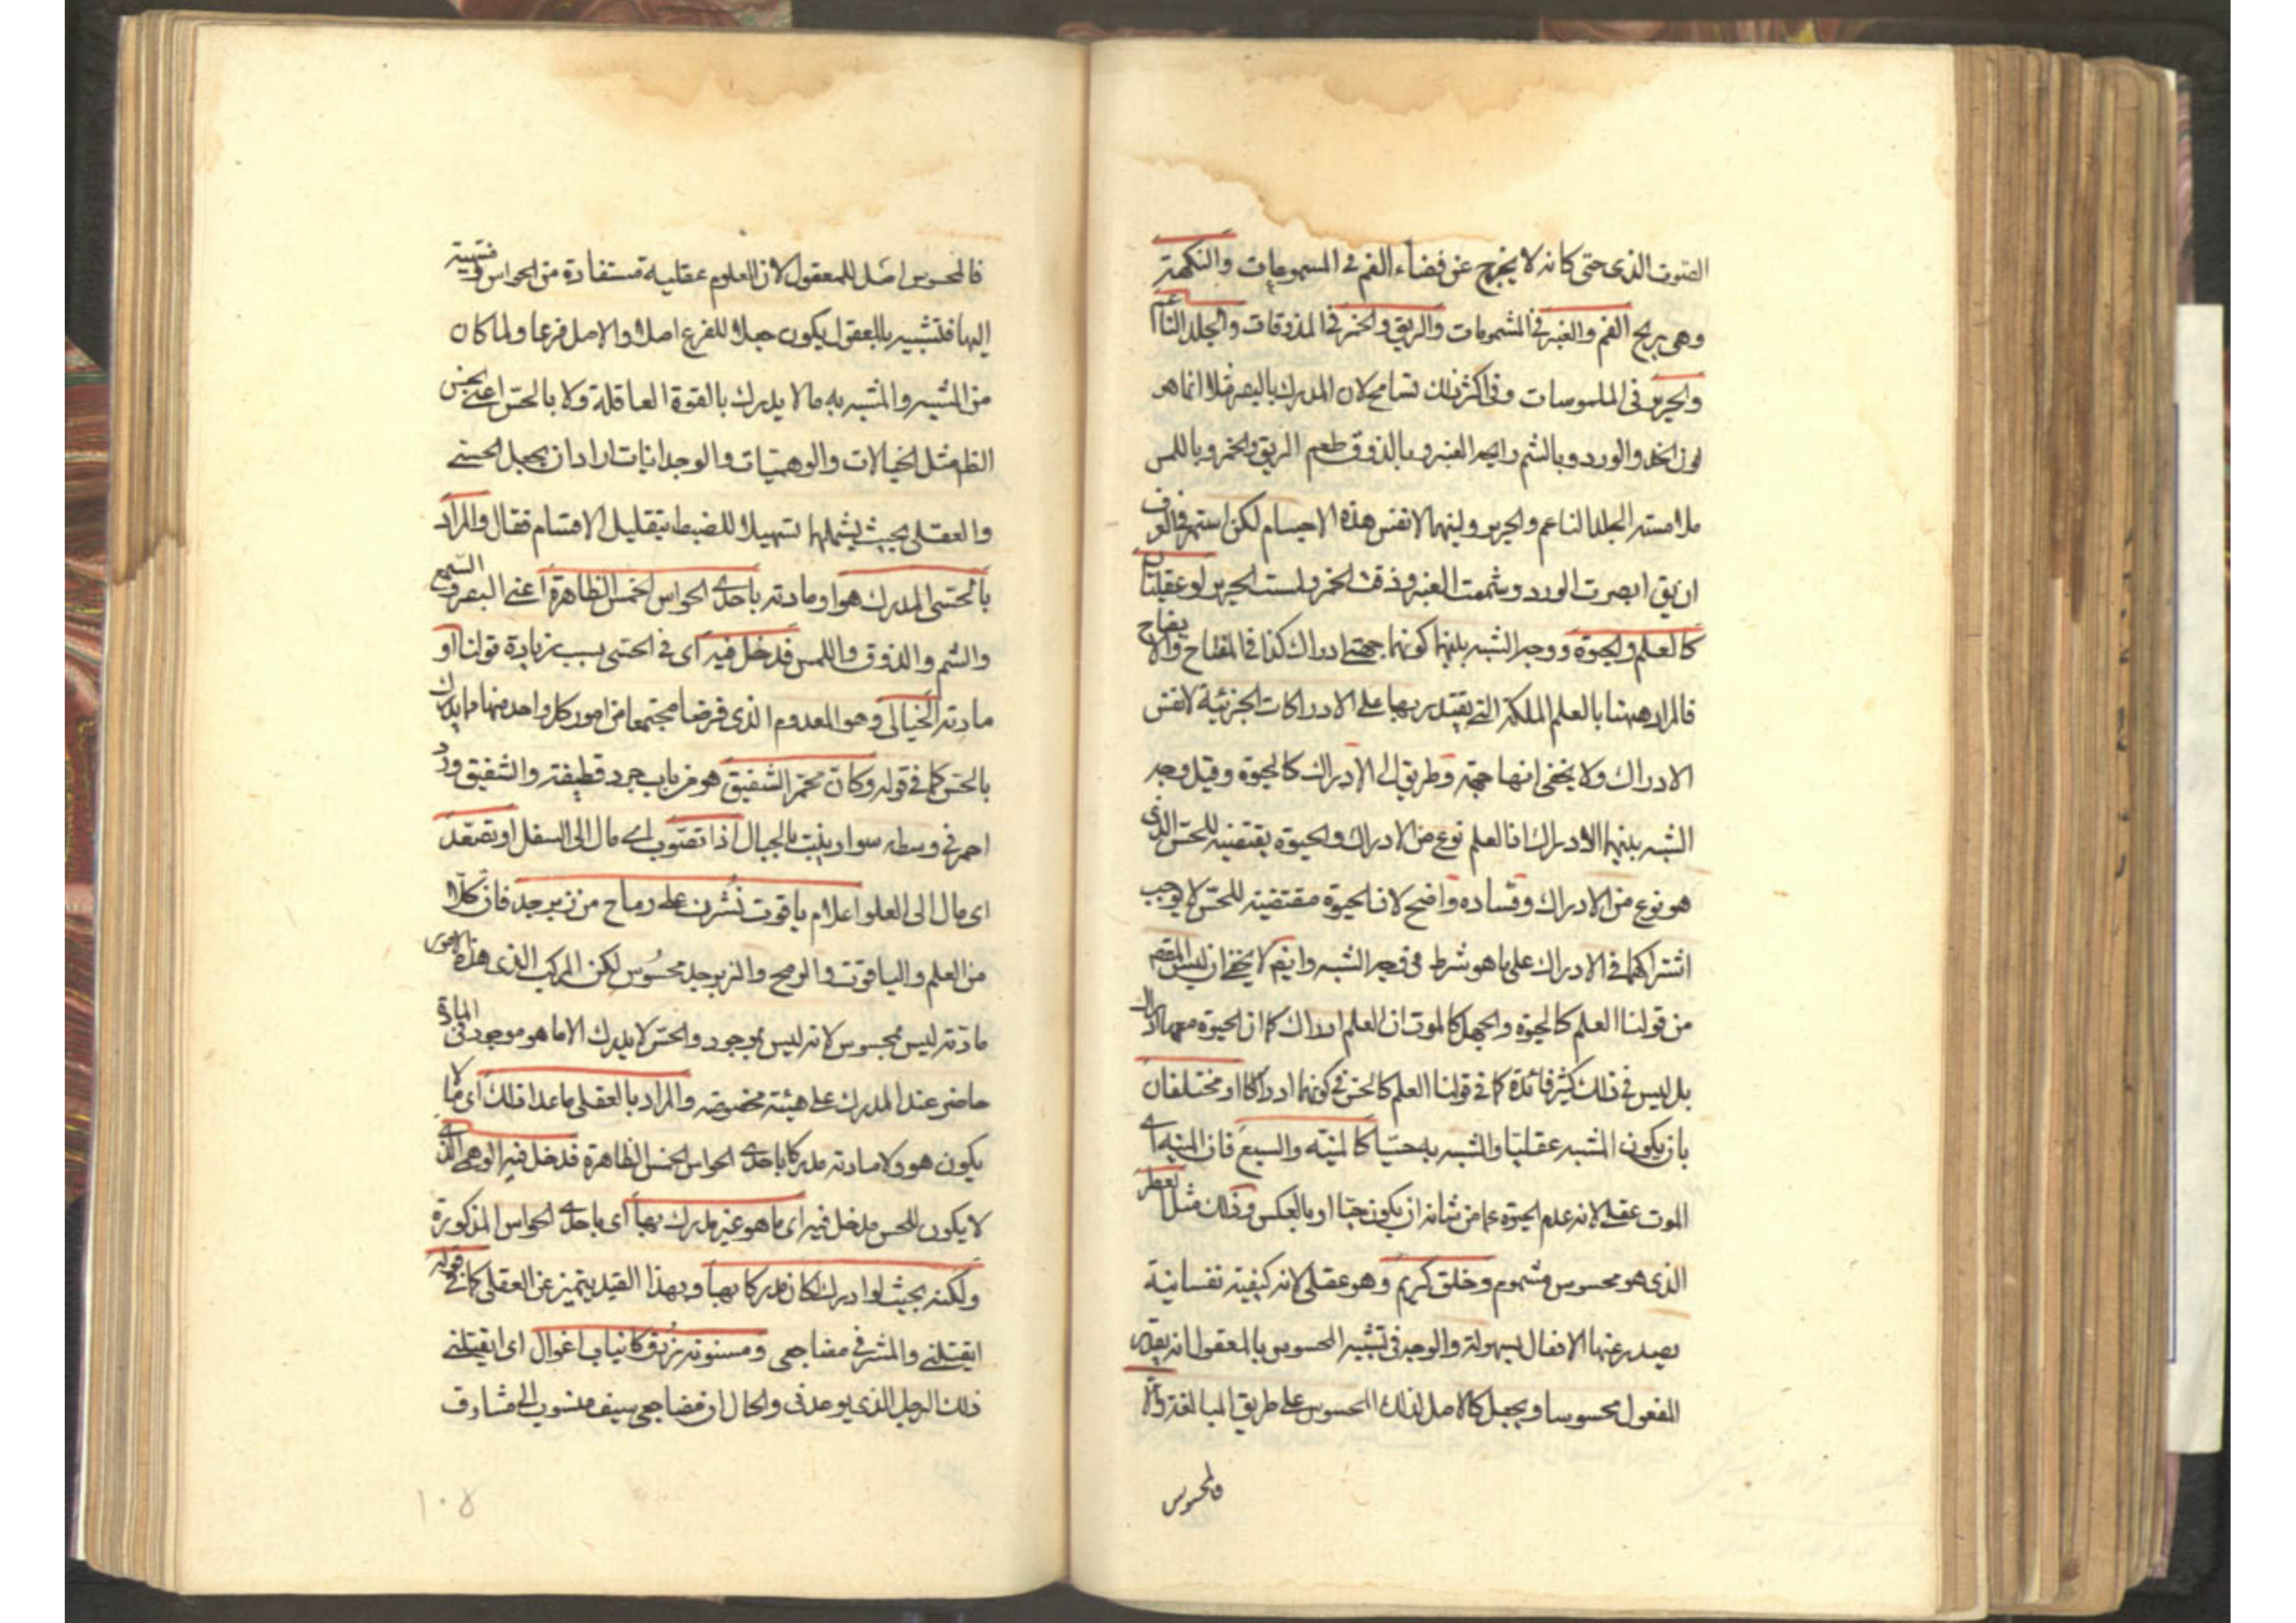 الصوت الذى حتى كانه لا يخرج عن فضاء الفم فى المسموعات والنكهة
وهى ريح الفم والعنبر فى المشمومات والريق والخمر فى المذوقات والجلد الناعم
والحرير فى الملموسات وفى اكثر ذلك تسامح لان المدرك بالبصر مثلا انما هو
لون الخد والورد وبالشم رايحة العنبر وبالذوق طعم الريق والخمر وباللمس
ملامسة الجلد الناعم والحرير ولينهما لا نفس هذه الاجسام لكن استمر فى العرف
ان يق ابصرت الورد وشممت العنبر وذقت الخمر ولمست الحرير او عقليان
كالعلم والحيوة ووجه الشبه بينهما كونهما جهتى ادراك كذا فى المفتاح والايضاح
فالمراد ههنا بالعلم الملكة التى يقتدر بها على الادراكات الجزئية لا نفس
الادراك ولا يخفى انها جهة وطريق الى الادراك كالحيوة وقيل وجه
الشبه بينهما الادراك فالعلم نوع من الادراك والحيوة يقتضيه للحس الذى
هو نوع من الادراك وفساده واضح لان الحيوة مقتضية للحس لا يوجب
اشتراكهما فى الادراك على ما هو شرط فى وجه الشبه وايضم لا يخفى ان ليس المقصم
من قولنا العلم كالحيوة والجهل كالموت ان العلم ادراك كما ان الحيوة معها ادراك
بل ليس فى ذلك كثير فائدة كما فى قولنا العلم كالحس فى كونهما ادراكا او مختلفان
بان يكون المشبه عقليا والمشبه به حسيا كالمنية والسبع فان المنية اى
الموت عقلى لانه عدم الحيوة عما من شانه ان يكون حيا او بالعكس وذلك مثل العطر
الذى هو محسوس مشموم وخلق كريم وهو عقلى لانه كيفية نفسانية
يصدر عنها الافعال بسهولة والوجه فى تشبيه المحسوس بالمعقول انه يقدر
المعقول محسوسا ويجعل كالاصل لذلك المحسوس على طريق المبالغة والا
فالمحسوس
فالمحسوس اصل للمعقول لان العلوم عقلية مستفادة من الحواس ومنتهية
اليها فتشبيه بالمعقول يكون جعلا للفرع اصلا والاصل فرعا ولما كان
من المشبه والمشبه به ما لا يدرك بالقوة العاقلة ولا بالحس اعنى الحس
الظ مثل الخيالات والوهميات والوجدانيات اراد ان يجعل الحسى
والعقلى بحيث يشملها تسهيلا للضبط بتقليل الاقسام فقال والمراد
بالحسى المدرك هو او مادته باحدى الحواس الخمس الظاهرة اعنى البصر والسمع
والشم والذوق واللمس فدخل فيه اى فى الحسى بسبب زيادة قولنا او
مادته الخيالى وهو المعدوم الذى فرض مجتمعا من امور كل واحد منها مما يدرك
بالحس كما فى قوله وكان محمر الشقيق هو من باب جرد قطيفة والشقيق ورد
احمر فى وسطه سواد ينبت بالجبال اذا تصوب اى مال الى السفل او تصعد
اى مال الى العلو اعلام ياقوت نشرن على رماح من زبرجد فان كلا
من العلم والياقوت والرمح والزبرجد محسوس لكن المركب الذى هذه الامور
مادته ليس بمحسوس لانه ليس بموجود والحس لا يدرك الا ما هو موجود فى المادة
حاضر عند المدرك على هيئة مخصوصة والمراد بالعقلى ما عدا ذلك اى ما لا
يكون هو ولا مادته مدركا باحدى الحواس الخمس الظاهرة فدخل فيه الوهمى الذى
لا يكون للحس مدخل فيه اى ما هو غير مدرك بها اى باحدى الحواس المذكورة
ولكنه بحيث لو ادرك لكان مدركا بها وبهذا القيد يتميز عن العقلى كما فى قوله
ايقتلنى والمشرفى مضاجعى ومسنونة زرق كانياب اغوال اى ايقتلنى
ذلك الرجل الذى يوعدنى والحال ان مضاجعى سيف منسوب الى مشارف
١٠٨